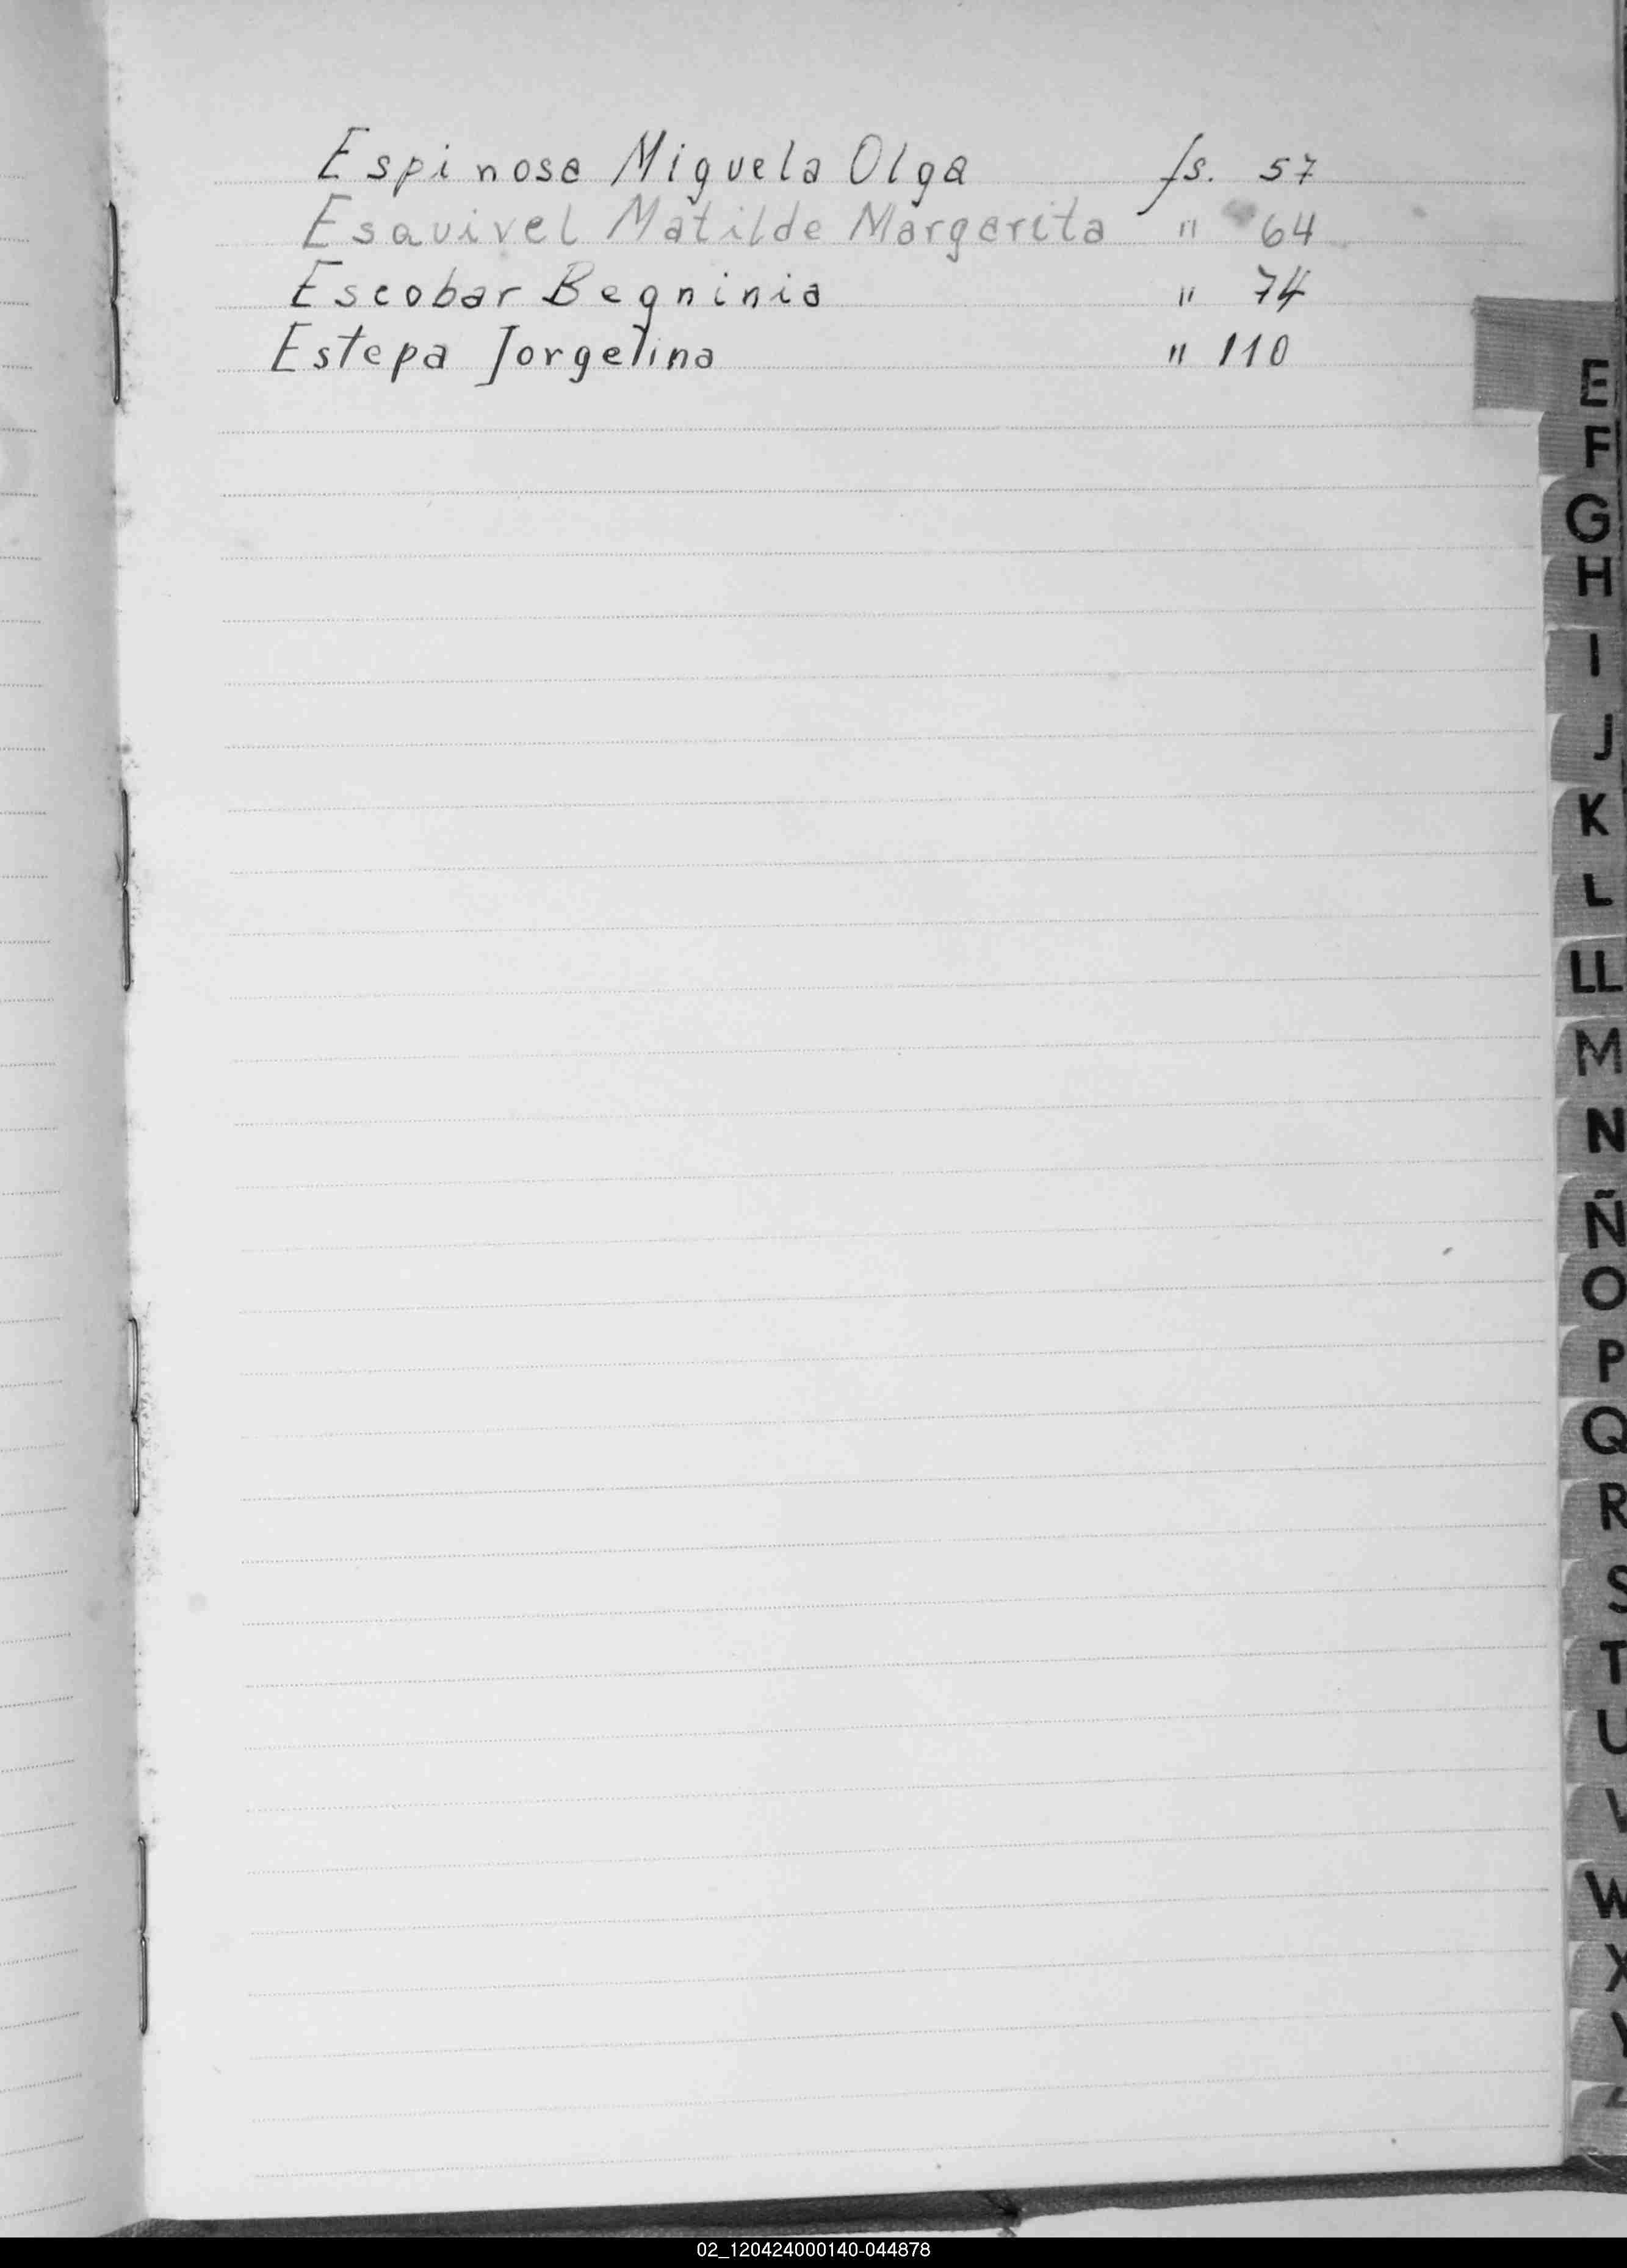 Espinosa Miguela Olga fs. 57
Esquivel Matilde Margarita " 64
Escobar Begninia " 74
Estepa Jorgelina " 110
E
F
G
H
I
J
K
L
LL
M
N
Ñ
O
P
Q
R
S
T
U
V
W
X
Y
02_120424000140-044878